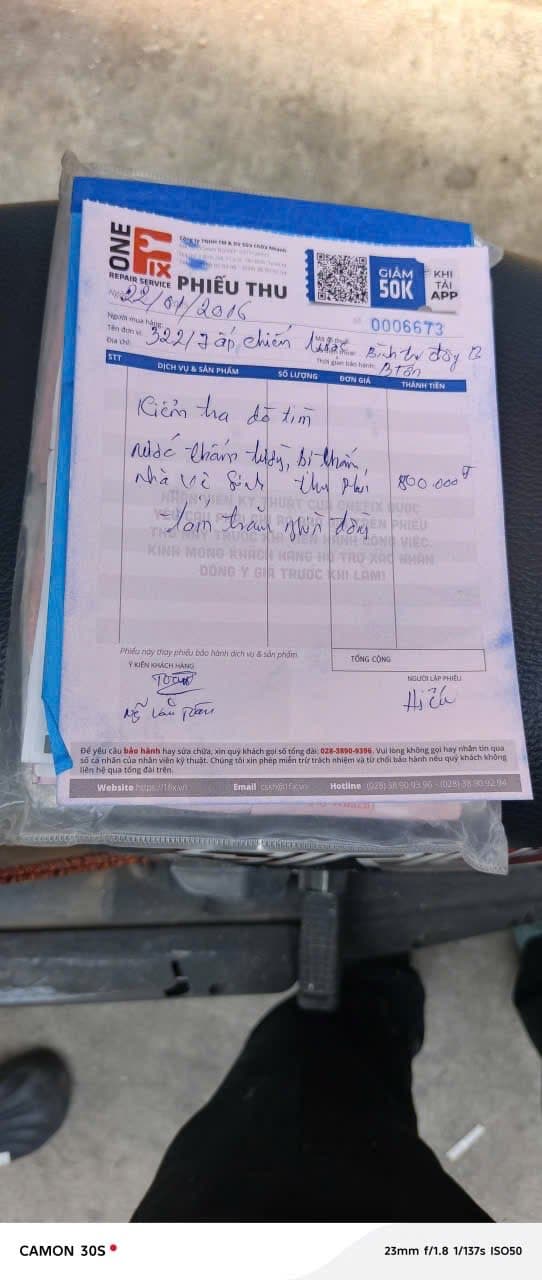 ONE
FIX
REPAIR SERVICE
Công ty TNHH TM & DV Sửa Chữa Nhanh
PHIẾU THU
GIẢM
50K
KHI
TẢI
APP
Ngày 22/01/2016
0006673
Người mua hàng:
Tên đơn vị:
Địa chỉ: 322/7 ấp chiến lược Bình trị đông B
Thời gian bảo hành: B Tân
STT DỊCH VỤ & SẢN PHẨM SỐ LƯỢNG ĐƠN GIÁ THÀNH TIỀN
Kiểm tra dò tìm
nước thấm tường, bị thấm,
Nhà vệ sinh thu phí 800.000đ
Tám trăm nghìn đồng
NHÂN VIÊN KỸ THUẬT CỦA ONEFIX ĐƯỢC
YÊU CẦU PHẢI PHIẾU
THU NÀY TRƯỚC KHI TIẾN HÀNH CÔNG VIỆC.
KÍNH MONG KHÁCH HÀNG HỖ TRỢ XÁC NHẬN
ĐỒNG Ý GIÁ TRƯỚC KHI LÀM!
Phiếu này thay phiếu bảo hành dịch vụ & sản phẩm.
TỔNG CỘNG
Ý KIẾN KHÁCH HÀNG
NGƯỜI LẬP PHIẾU
Toàn
Hiếu
Văn Toàn
Để yêu cầu bảo hành hay sửa chữa, xin quý khách gọi số tổng đài: 028-3890-9396. Vui lòng không gọi hay nhắn tin qua
số cá nhân của nhân viên kỹ thuật. Chúng tôi xin phép miễn trừ trách nhiệm và từ chối bảo hành nếu quý khách không
liên hệ qua tổng đài trên.
Website https://1fix.vn Email cskh@1fix.vn Hotline (028) 38.90.93.96 - (028) 38.90.92.94
CAMON 30S
23mm f/1.8 1/137s ISO50